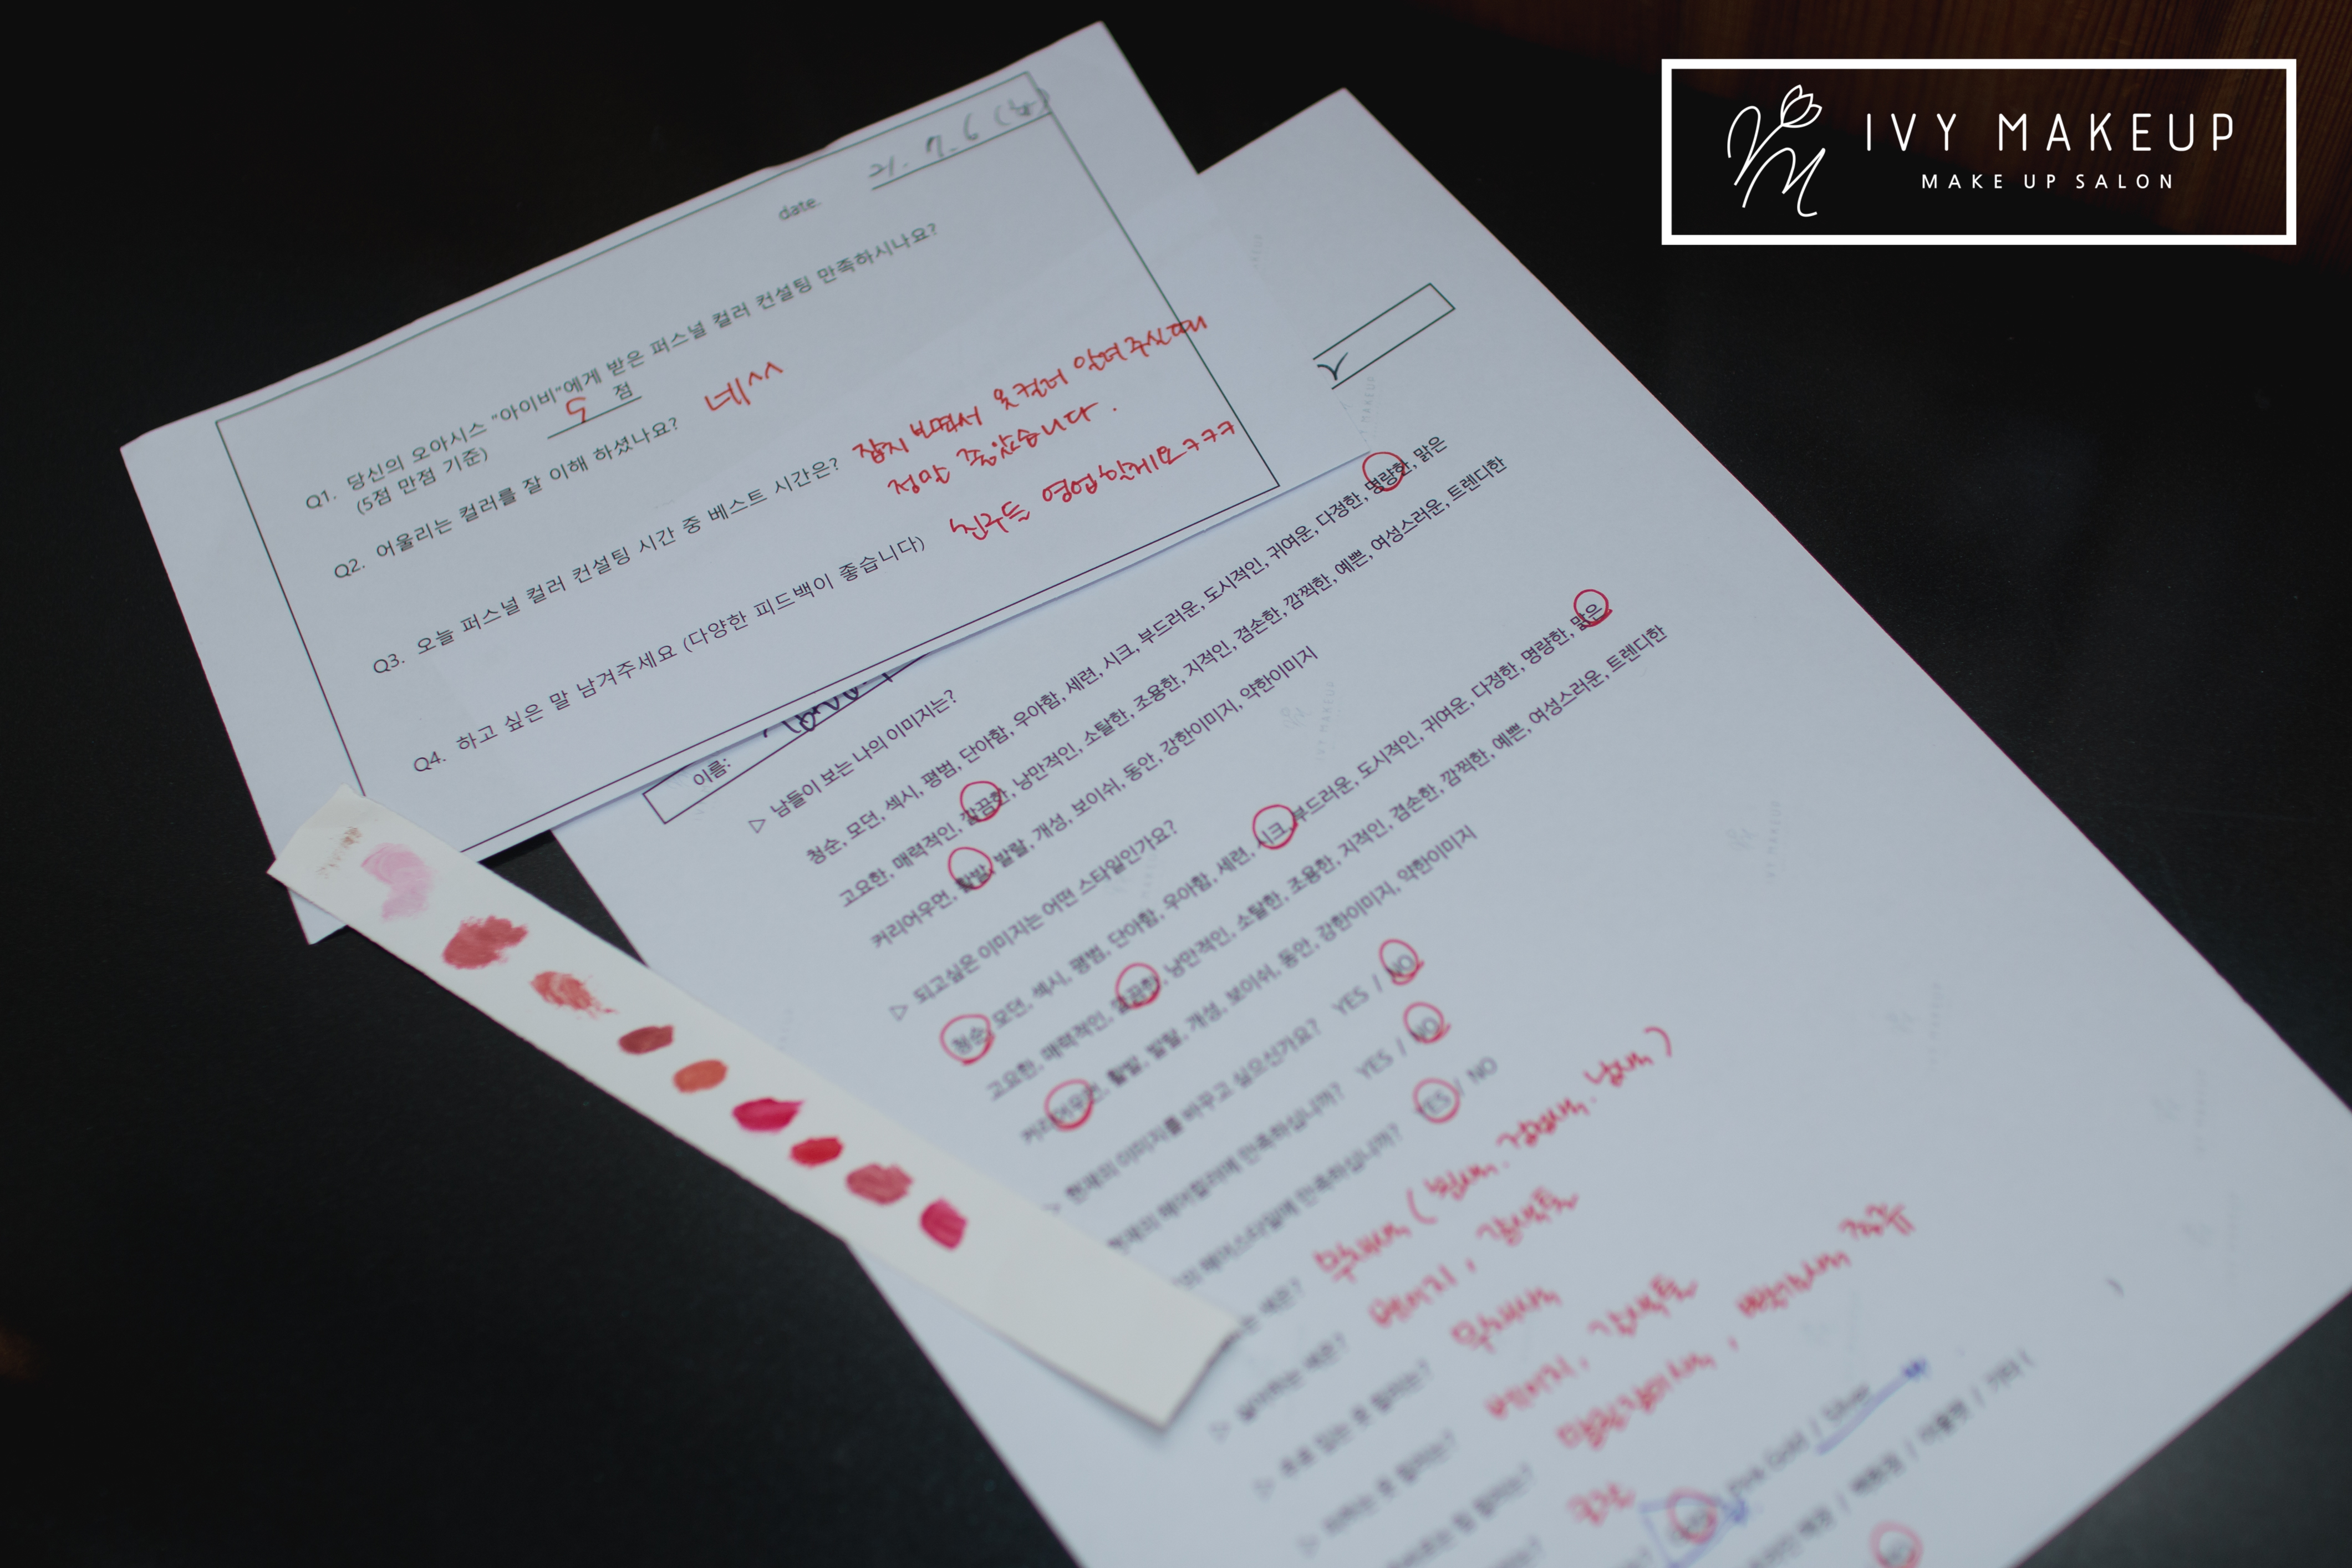 IVY MAKEUP
MAKE UP SALON
date. 21. 7. 6 (화)
Q1. 당신의 오아시스 "아이비"에게 받은 퍼스널 컬러 컨설팅 만족하시나요?
(5점 만점 기준) 5 점
Q2. 어울리는 컬러를 잘 이해 하셨나요? 네^^
Q3. 오늘 퍼스널 컬러 컨설팅 시간 중 베스트 시간은? 잡지 보면서 옷컬러 알려주실때
정말 좋았습니다.
Q4. 하고 싶은 말 남겨주세요 (다양한 피드백이 좋습니다) 친구들 영업할게요ㅋㅋㅋ
이름:
▷ 남들이 보는 나의 이미지는?
청순, 모던, 섹시, 평범, 단아함, 우아함, 세련, 시크, 부드러운, 도시적인, 귀여운, 다정한, 명랑한, 맑은
고요한, 매력적인, 깔끔한, 낭만적인, 소탈한, 조용한, 지적인, 겸손한, 깜찍한, 예쁜, 여성스러운, 트렌디한
커리어우먼, 활발, 발랄, 개성, 보이쉬, 동안, 강한이미지, 약한이미지
▷ 되고싶은 이미지는 어떤 스타일인가요?
청순, 모던, 섹시, 평범, 단아함, 우아함, 세련, 시크, 부드러운, 도시적인, 귀여운, 다정한, 명랑한, 맑은
고요한, 매력적인, 깔끔한, 낭만적인, 소탈한, 조용한, 지적인, 겸손한, 깜찍한, 예쁜, 여성스러운, 트렌디한
커리어우먼, 활발, 발랄, 개성, 보이쉬, 동안, 강한이미지, 약한이미지
▷ 현재의 이미지를 바꾸고 싶으신가요? YES / NO
현재의 헤어컬러에 만족하십니까? YES / NO
의 헤어스타일에 만족하십니까? YES / NO
는 색은? 무채색 (흰색. 검정색. 남색)
▷ 싫어하는 색은? 베이지, 갈색톤
▷ 주로 입는 옷 컬러는? 무채색
▷ 피하는 옷 컬러는? 베이지, 갈색톤
Pink Gold / Silver